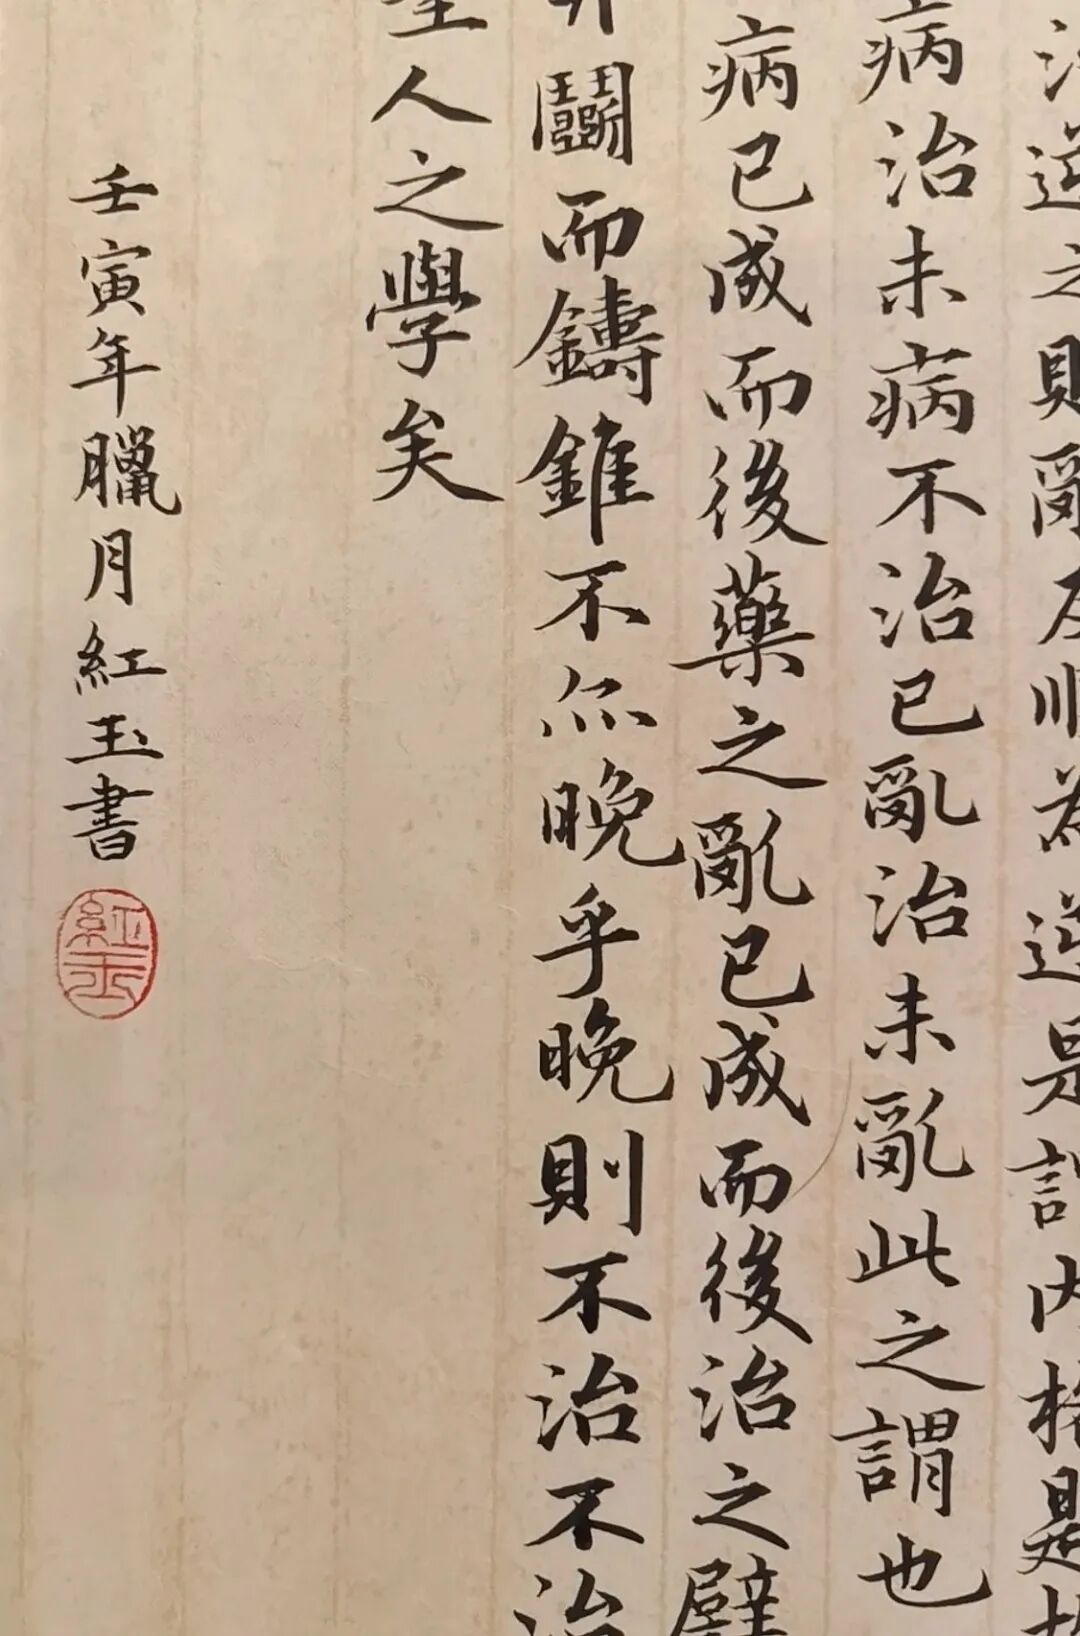 治逆之則亂反順為逆是謂內格是故
病治未病不治已亂治未亂此之謂也
病已成而後藥之亂已成而後治之譬
鬭而鑄錐不亦晚乎晚則不治不治
聖人之學矣
壬寅年臘月紅玉書
紅玉